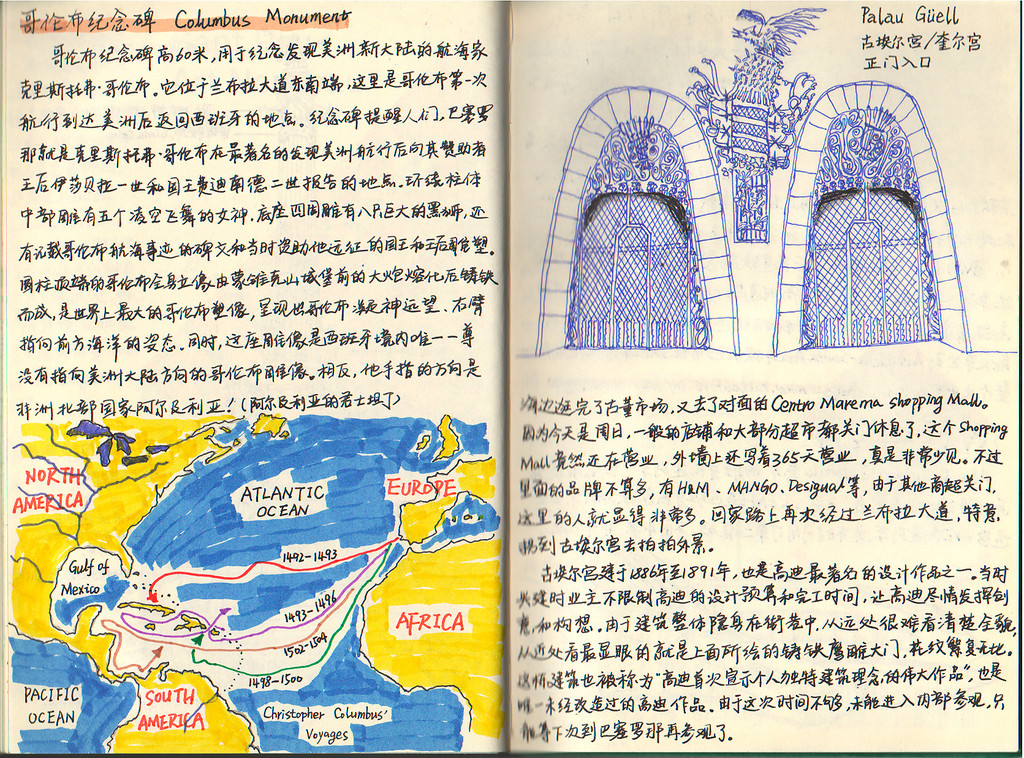 哥伦布纪念碑 Columbus Monument
哥伦布纪念碑高60米，用于纪念发现美洲新大陆的航海家
克里斯托弗·哥伦布。它位于兰布拉大道东南端，这里是哥伦布第一次
航行到达美洲后返回西班牙的地点。纪念碑提醒人们，巴塞罗
那就是克里斯托弗·哥伦布在最著名的发现美洲航行后向其赞助者
王后伊莎贝拉一世和国王费迪南德二世报告的地点。环绕柱体
中部雕有五个凌空飞舞的女神，底座四周雕有八只巨大的黑狮，还
有记载哥伦布航海事迹的碑文和当时资助他远征的国王和王后雕塑。
圆柱顶端的哥伦布全身立像由蒙锥克山城堡前的大炮熔化后铸铁
而成，是世界上最大的哥伦布塑像，呈现出哥伦布凝神远望、右臂
指向前方海洋的姿态。同时，这座雕像是西班牙境内唯一一尊
没有指向美洲大陆方向的哥伦布雕像。相反，他手指的方向是
非洲北部国家阿尔及利亚！（阿尔及利亚的君士坦丁）
NORTH
AMERICA
ATLANTIC
OCEAN
EUROPE
Gulf of
Mexico
1492-1493
1493-1496
1502-1504
1498-1500
AFRICA
PACIFIC
OCEAN
SOUTH
AMERICA
Christopher Columbus'
Voyages
Palau Güell
古埃尔宫/奎尔宫
正门入口
海边逛完了古董市场，又去了对面的Centro Marema shopping Mall。
因为今天是周日，一般的店铺和大部分超市都关门休息了，这个Shopping
Mall竟然还在营业，外墙上还写着365天营业，真是非常少见。不过
里面的品牌不算多，有H&M、MANGO、Desigual等，由于其他商超关门，
这里的人就显得非常多。回家路上再次经过兰布拉大道，特意
赐到古埃尔宫去拍拍外景。
古埃尔宫建于1886年至1891年，也是高迪最著名的设计作品之一。当时
兴建时业主不限制高迪的设计预算和完工时间，让高迪尽情发挥创
意和构想。由于建筑整体隐身在街巷中，从远处很难看清楚全貌，
从近处看最显眼的就是上面所绘的铸铁鹰雕大门，花纹繁复无比。
这栋建筑也被称为“高迪首次宣示个人独特建筑理念的伟大作品”，也是
唯一未经改造过的高迪作品。由于这次时间不够，未能进入内部参观，只
能等下次到巴塞罗那再参观了。